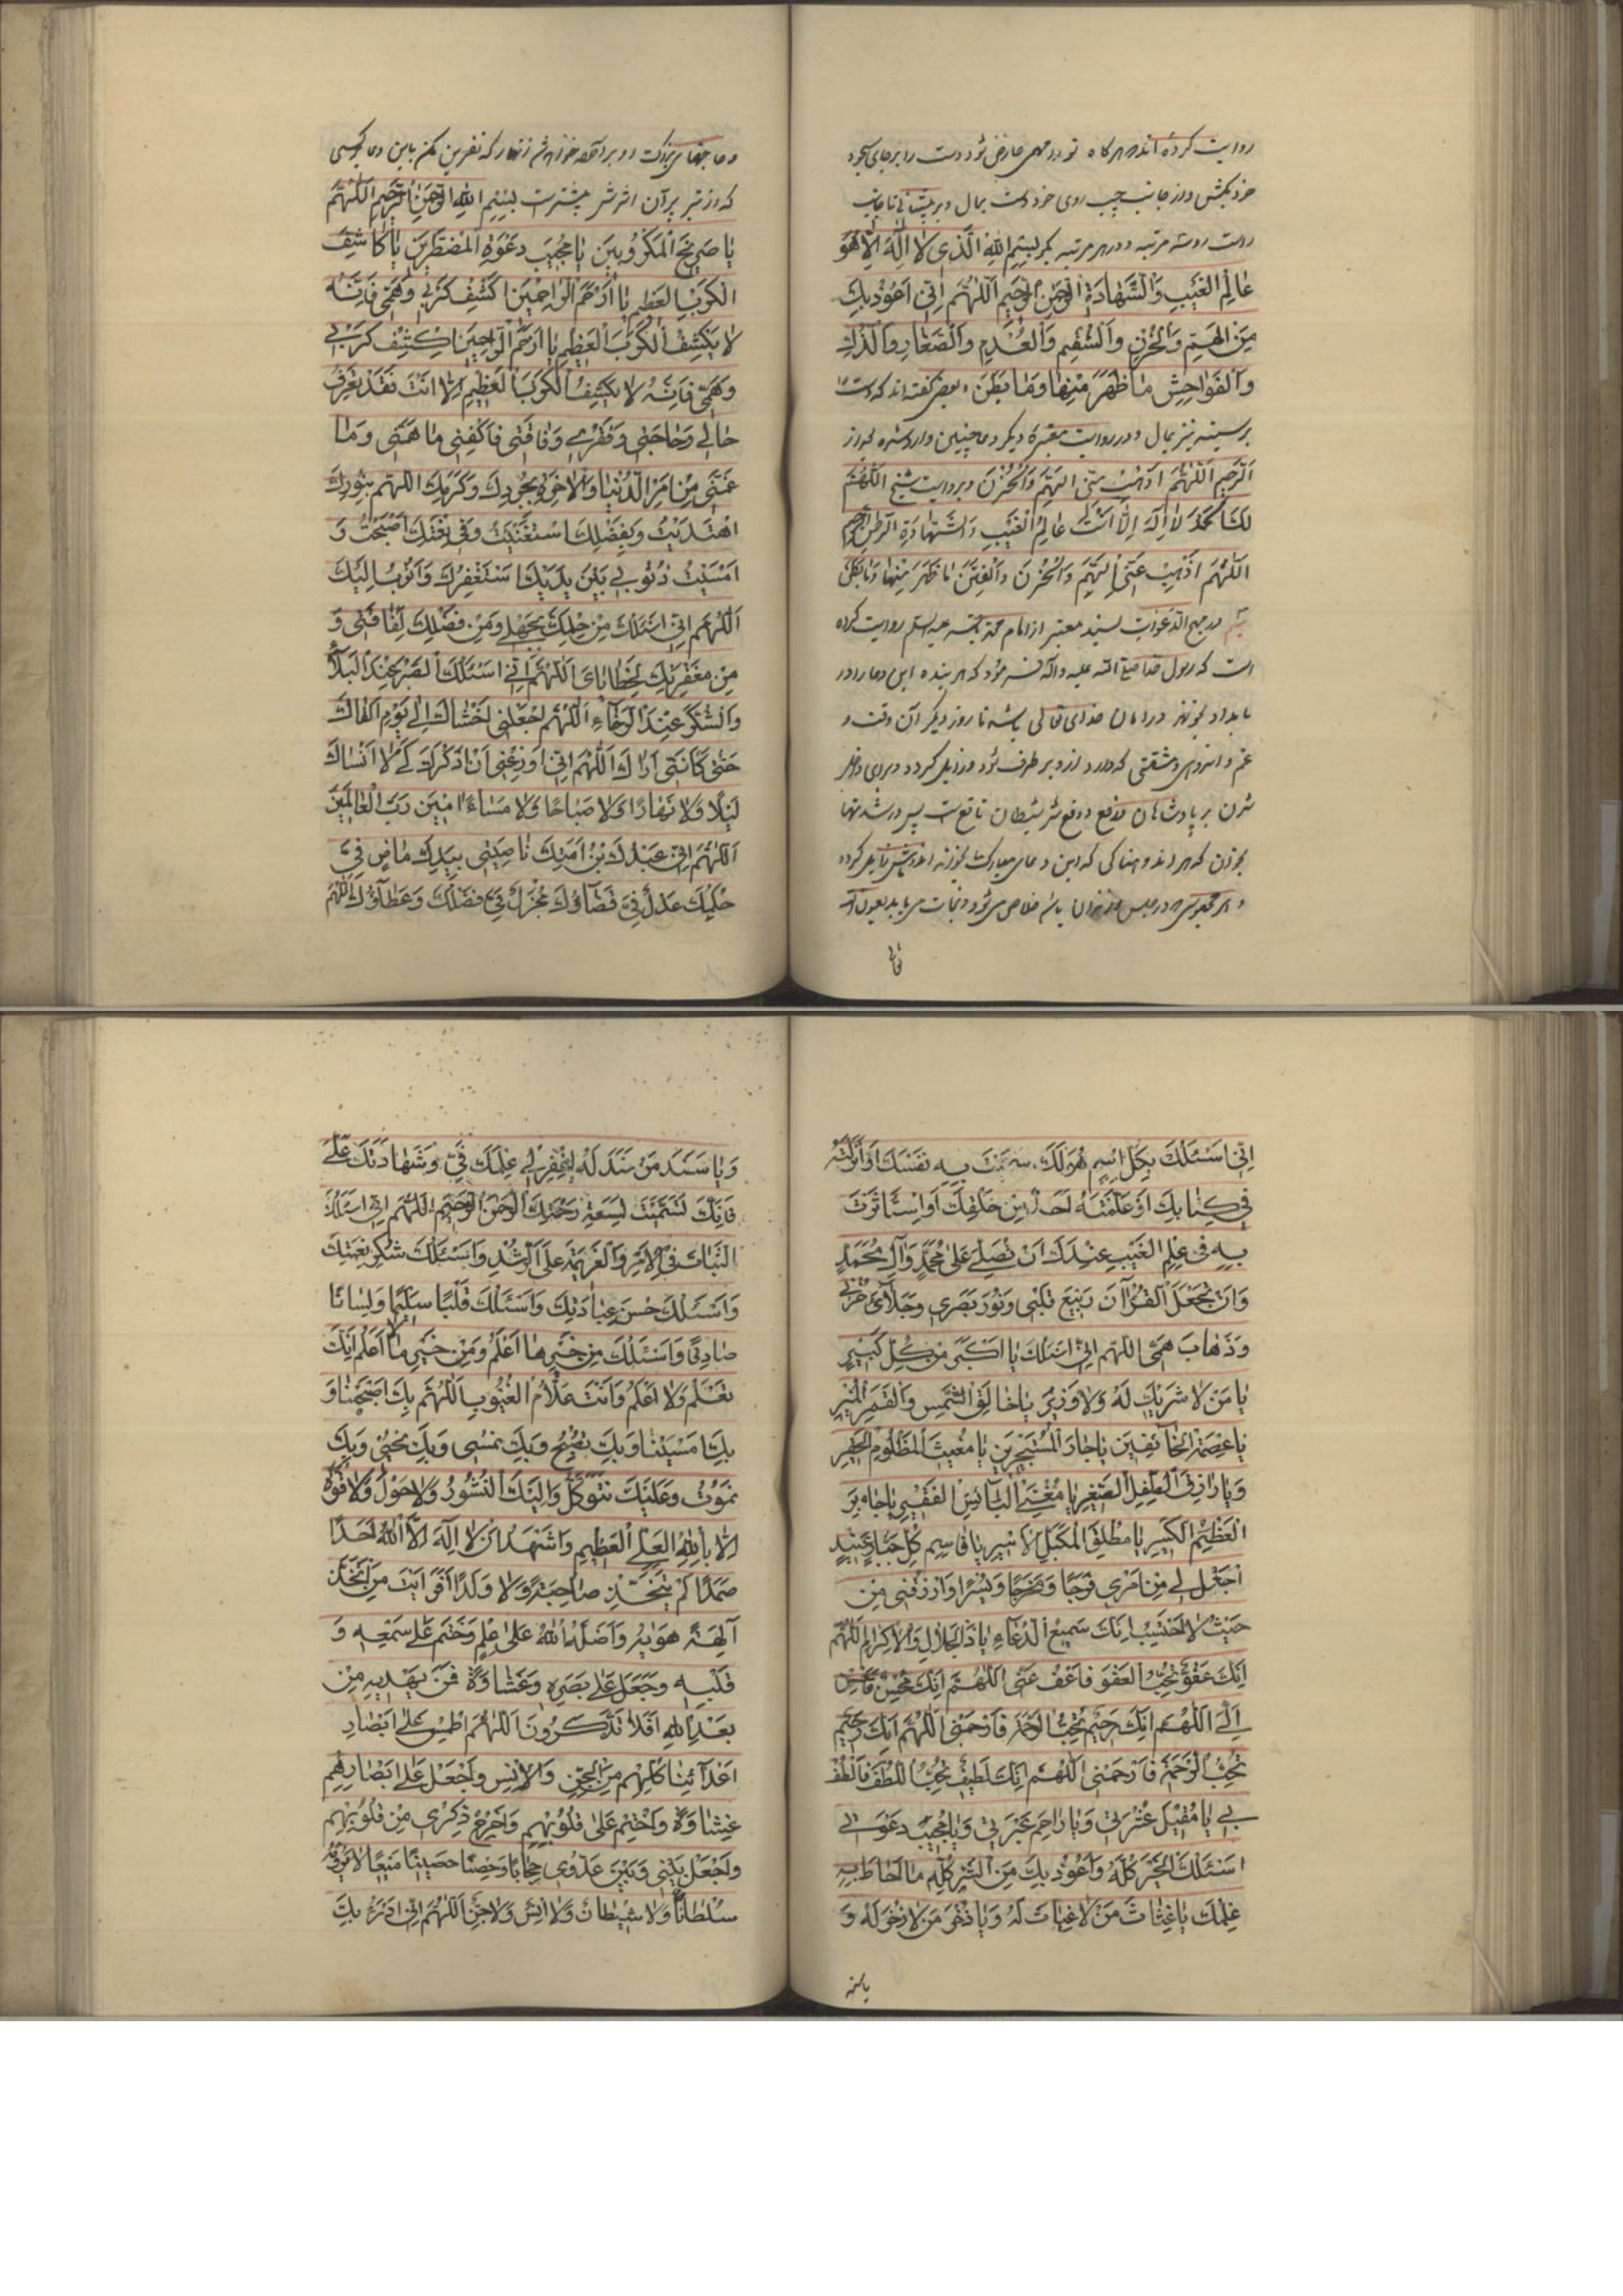 روایت کرده‌اند هر گاه تو را مهمی عارض شود دست را بر جای سجود
خود بکش و از جانب چپ روی خود دست بمال و بر پیشانی تا جانب
راست رو سه مرتبه و در هر مرتبه بگو بِسْمِ اللهِ الَّذی لا اِلهَ اِلّا هُوَ
عالِمُ الغَیْبِ وَالشَّهادَةِ الرَّحْمنُ الرَّحیمُ اَللّهُمَّ اِنّی اَعُوذُ بِكَ
مِنَ الهَمِّ وَالحُزْنِ وَالسُّقْمِ وَالعُدْمِ وَالصَّغارِ وَالذُّلِّ
وَالفَواحِشِ ما ظَهَرَ مِنْها وَما بَطَنَ و بعضی گفته‌اند که دست را
بر سینه نیز بمال و در روایت معتبره دیگر دعا چنین وارد شده
الرَّحیم اَللّهُمَّ اذْهَبْ عَنّی الهَمَّ وَالحُزْنَ و بروایت شیخ اَللّهُمَّ
لَكَ الحَمْدُ لا اِلهَ اِلّا اَنْتَ عالِمُ الغَیْبِ وَالشَّهادَةِ الرَّحْمن الرَّحیم
اَللّهُمَّ اذْهِبْ عَنّی الهَمَّ وَالحُزْنَ وَالفِتَنَ ما ظَهَرَ مِنْها وَما بَطَنَ
در مهج الدعوات بسند معتبر از امام علیه السلم روایت کرده
است که رسول خدا صلی الله علیه وآله فرمود که هر بنده این دعا را در
بامداد بخواند در امان خدای تعالی باشد تا روز دیگر آن وقت و
غم و اندوهی و مشقتی که دارد از و بر طرف شود و زایل گردد و برای داخل
شدن بر پادشاهان و دفع شر شیطان نافع است پس در شدتها
بخوان که هر اندوهناکی که این دعای مبارک بخواند اندوهش زایل گردد
و هر محبوسی در حبس و زندان باشد خلاص می‌شود و نجات می‌یابد بعون الله
و حاجتهای بزرگ او برآورده شود زنهار که نفرین مکن باین دعا بر کسی
که از تیر بران اثرش بیشتر است بِسْمِ اللهِ الرَّحْمنِ الرَّحیمِ اَللّهُمَّ
یا صَریخَ المَكْرُوبینَ یا مُجیبَ دَعْوَةِ المُضْطَرّینَ یا كاشِفَ
الكَرْبِ العَظیمِ یا اَرْحَمَ الرّاحِمینَ اكْشِفْ كَرْبی وَهَمّی فَاِنَّهُ
لا یَكْشِفُ الكَرْبَ العَظیمَ یا اَرْحَمَ الرّاحِمینَ اِكْشِفْ كَرْبی
وَهَمّی فَاِنَّهُ لا یَكْشِفُ الكَرْبَ العَظیمَ اِلّا اَنْتَ فَقَدْ تَعْرِفُ
حالی وَحاجَتی وَفَقْری وَفاقَتی فَاكْفِنی ما هَمَّنی وَما
غَمَّنی مِنْ اَمْرِ الدُّنْیا وَالاخِرَةِ بِجُودِكَ وَكَرَمِكَ اللّهُمَّ بِنُورِكَ
اهْتَدَیْتُ وَبِفَضْلِكَ اسْتَغْنَیْتُ وَفی نِعْمَتِكَ اَصْبَحْتُ وَ
اَمْسَیْتُ ذُنُوبی بَیْنَ یَدَیْكَ اَسْتَغْفِرُكَ وَاَتُوبُ اِلَیْكَ
اَللّهُمَّ اِنّی اَسْئَلُكَ مِنْ حِلْمِكَ لِجَهْلی وَمِنْ فَضْلِكَ لِفاقَتی وَ
مِنْ مَغْفِرَتِكَ لِخَطایایَ اَللّهُمَّ اِنّی اَسْئَلُكَ الصَّبْرَ عِنْدَ البَلاءِ
وَالشُّكْرَ عِنْدَ الرَّخاءِ اَللّهُمَّ اجْعَلْنی اَخْشاكَ اِلی یَوْمِ اَلْقاكَ
حَتّی كَاَنَّنی اَراكَ اَللّهُمَّ اِنّی اَوْزِعْنی اَنْ اَذْكُرَكَ كَیْ لا اَنْساكَ
لَیْلًا وَلا نَهارًا وَلا صَباحًا وَلا مَساءً امینَ رَبَّ العالَمینَ
اَللّهُمَّ اِنّی عَبْدُكَ بْنُ اَمَتِكَ ناصِیَتی بِیَدِكَ ماضٍ فِیَّ
حُكْمُكَ عَدْلٌ فِیَّ قَضاؤُكَ مُجْزِلٌ فِیَّ فَضْلُكَ وَعَطاؤُكَ اللّهُمَّ
اِنّی اَسْئَلُكَ بِكُلِّ اسْمٍ هُوَ لَكَ سَمَّیْتَ بِهِ نَفْسَكَ اَوْ اَنْزَلْتَهُ
فی كِتابِكَ اَوْ عَلَّمْتَهُ اَحَدًا مِنْ خَلْقِكَ اَوِ اسْتَاْثَرْتَ
بِهِ فی عِلْمِ الغَیْبِ عِنْدَكَ اَنْ تُصَلِّیَ عَلی مُحَمَّدٍ وَآلِ مُحَمَّدٍ
وَاَنْ تَجْعَلَ القُرْآنَ رَبیعَ قَلْبی وَنُورَ بَصَری وَجَلاءَ حُزْنی
وَذَهابَ هَمّی اللّهُمَّ اِنّی اَسْئَلُكَ یا اَكْبَرَ مِنْ كُلِّ كَبیرٍ
یا مَنْ لا شَریكَ لَهُ وَلا وَزیرَ یا خالِقَ الشَّمْسِ وَالقَمَرِ المُنیرِ
یا عِصْمَةَ الخائِفینَ یا جارَ المُسْتَجیرینَ یا مُغیثَ المَظْلُومِ الحَقیرِ
وَیا رازِقَ الطِّفْلِ الصَّغیرِ یا مُغْنِیَ البائِسِ الفَقیرِ یا جابِرَ
العَظْمِ الكَسیرِ یا مُطْلِقَ المُكَبَّلِ الاَسیرِ یا قاصِمَ كُلِّ جَبّارٍ عَنیدٍ
اجْعَلْ لی مِنْ اَمْری فَرَجًا وَمَخْرَجًا وَیُسْرًا وَارْزُقْنی مِنْ
حَیْثُ لا اَحْتَسِبُ اِنَّكَ سَمیعُ الدُّعاءِ یا ذَا الجَلالِ وَالاِكْرامِ اللّهُمَّ
اِنَّكَ عَفُوٌّ تُحِبُّ العَفْوَ فَاعْفُ عَنّی اللّهُمَّ اِنَّكَ مُحْسِنٌ فَاَحْسِنْ
اِلَیَّ اللّهُمَّ اِنَّكَ رَحیمٌ تُحِبُّ الرَّحْمَةَ فَارْحَمْنی اللّهُمَّ اِنَّكَ رَحیمٌ
تُحِبُّ الرَّحْمَةَ فَارْحَمْنی اللّهُمَّ اِنَّكَ لَطیفٌ تُحِبُّ اللُّطْفَ فَالْطُفْ
بی یا مُقیلَ عَثْرَتی وَیا راحِمَ عَبْرَتی وَیا مُجیبَ دَعْوَتی
اَسْئَلُكَ الخَیْرَ كُلَّهُ وَاَعُوذُ بِكَ مِنَ الشَّرِّ كُلِّهِ ما اَحاطَ بِهِ
عِلْمُكَ یا غِیاثَ مَنْ لا غِیاثَ لَهُ وَیا ذُخْرَ مَنْ لا ذُخْرَ لَهُ وَ
وَیا سَنَدَ مَنْ لا سَنَدَ لَهُ اِغْفِرْ لی عِلْمَكَ فِیَّ وَشَهادَتَكَ عَلَیَّ
فَاِنَّكَ تَسَمَّیْتَ لِسَعَةِ رَحْمَتِكَ الرَّحْمنَ الرَّحیمَ اللّهُمَّ اِنّی اَسْئَلُكَ
الثَّباتَ فی الاَمْرِ وَالعَزیمَةَ عَلَی الرُّشْدِ وَاَسْئَلُكَ شُكْرَ نِعْمَتِكَ
وَاَسْئَلُكَ حُسْنَ عِبادَتِكَ وَاَسْئَلُكَ قَلْبًا سَلیمًا وَلِسانًا
صادِقًا وَاَسْئَلُكَ مِنْ خَیْرِ ما اَعْلَمُ وَمِنْ خَیْرِ ما لا اَعْلَمُ اِنَّكَ
تَعْلَمُ وَلا اَعْلَمُ وَاَنْتَ عَلّامُ الغُیُوبِ اَللّهُمَّ بِكَ اَصْبَحْنا وَ
بِكَ اَمْسَیْنا وَبِكَ نُصْبِحُ وَبِكَ نُمْسی وَبِكَ نَحْیی وَبِكَ
نَمُوتُ وَعَلَیْكَ نَتَوَكَّلُ وَاِلَیْكَ النُّشُورُ وَلا حَوْلَ وَلا قُوَّةَ
اِلّا بِاللهِ العَلِیِّ العَظیمِ وَاَشْهَدُ اَنْ لا اِلهَ اِلّا اللهُ اَحَدًا
صَمَدًا لَمْ یَتَّخِذْ صاحِبَةً وَلا وَلَدًا اَفَرَاَیْتَ مَنِ اتَّخَذَ
آلِهَةً هَوایهُ وَاَضَلَّهُ اللهُ عَلی عِلْمٍ وَخَتَمَ عَلی سَمْعِهِ وَ
قَلْبِهِ وَجَعَلَ عَلی بَصَرِهِ وَغِشاوَةً فَمَنْ یَهْدیهِ مِنْ
بَعْدِ اللهِ اَفَلا تَذَكَّرُونَ اَللّهُمَّ اطْمِسْ عَلی اَبْصارِ
اَعْدائِنا كُلِّهِمْ مِنَ الجِنِّ وَالاِنْسِ وَاجْعَلْ عَلی اَبْصارِهِمْ
غِشاوَةً وَاخْتِمْ عَلی قُلُوبِهِمْ وَاَخْرِجْ ذِكْری مِنْ قُلُوبِهِمْ
وَاجْعَلْ بَیْنی وَبَیْنَ عَدُوّی حِجابًا وَحِصْنًا حَصینًا مَنیعًا لا یَرُومُهُ
سُلْطانٌ وَلا شَیْطانٌ وَلا اِنْسٌ وَلا جِنٌّ اَللّهُمَّ اِنّی اَدْرَءُ بِكَ